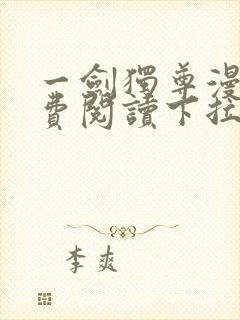 一劍獨尊漫
費閱讀下拉
李爽